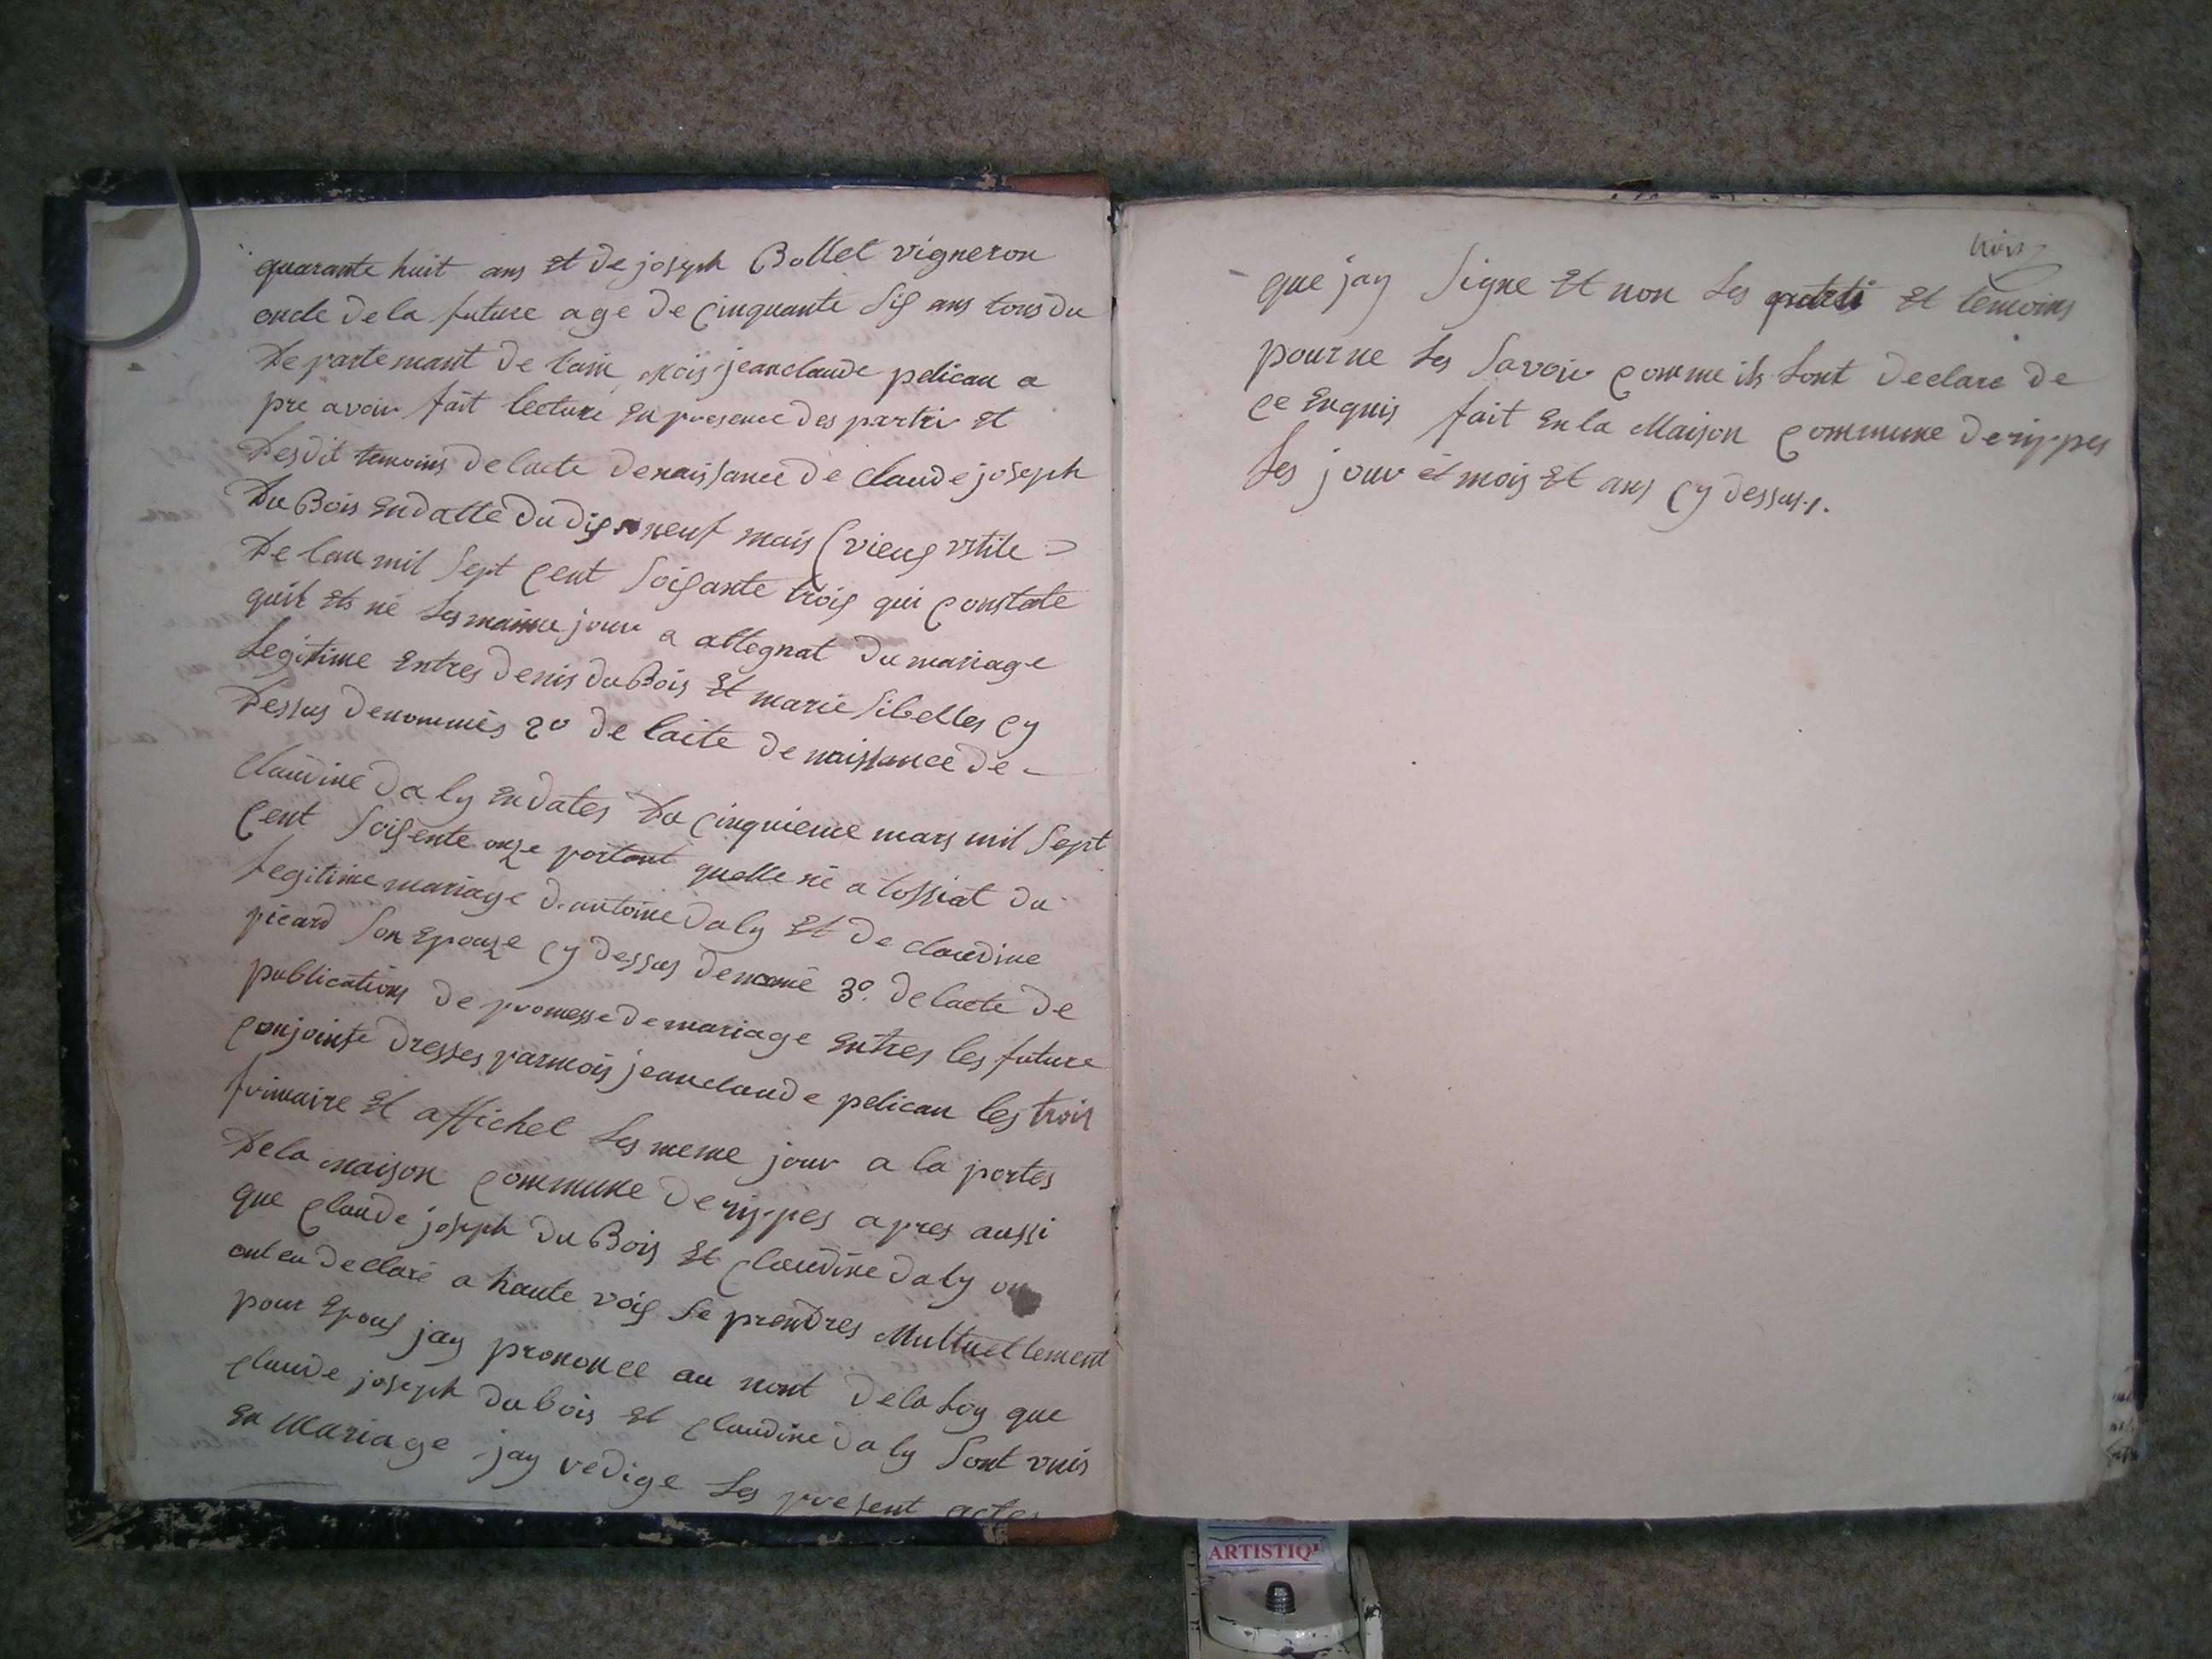 quarante huit ans Et De joseph Bollet vigneron
oncle De la future age De Cinquante Six ans tous du
Departemant De lain mois jean claude pelican a
pre avoir fait lecture En presence Des partis Et
Desdit temoins De lacte De naissance De Claude joseph
Du Bois En datte Du Dix neuf mais (vieux stile)
De lan mil Sept Cent Soixante trois qui Constate
quil Ets né Les maime jour a attegnat Du mariage
Legitime Entres Denis Du Bois Et marie Sibelles Cy
Dessus Denommés 2º De laite De naissance De -
Claudine Daly En dates Du Cinquieme mars mil Sept
Cent Soixente onze portant quelle né a tossiat Du
Legitime mariage D. antoine Daly Et De Claudine
picard Son Epouze Cy Dessus Denomé 3º. De lacte De
publications De promesse De mariage Entres les future
Conjointe Dresses par mois jean claude pelican les trois
frimaire Et affichet Les meme jour a la portes
De la maison Commune De rippes apres aussi
que Claude joseph Du Bois Et Claudine Daly
ont eu Declaré a haute voix Se prendres Multuellement
pour Epoux jay prononce au nont De la Loy que
Claude joseph Du bois Et Claudine Daly Sont unis
En Mariage jay redige Les present actes
trois
que jay Signe Et non Les parti Et temoins
pour ne Les Savoir Comme ils Lont Declare De
Ce Enquis fait En la Maison Commune De rippes
Les jour et mois Et ans Cy Dessus.
ARTISTIQ